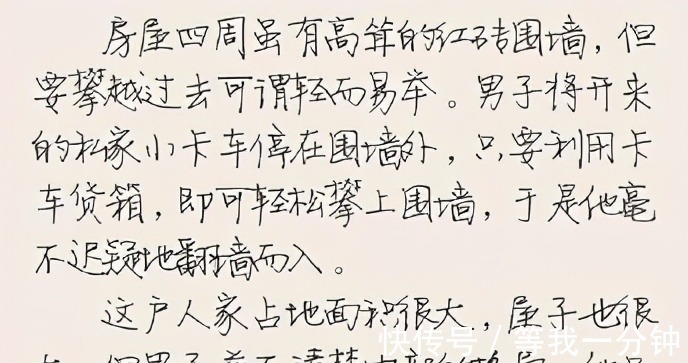 房屋四周虽有高耸的红砖围墙，但
要攀越过去可谓轻而易举。男子将开来
的私家小卡车停在围墙外，只要利用卡
车货箱，即可轻松攀上围墙，于是他毫
不迟疑地翻墙而入。
这户人家占地面积很大，屋子也很
快传号 / 等我一分钟